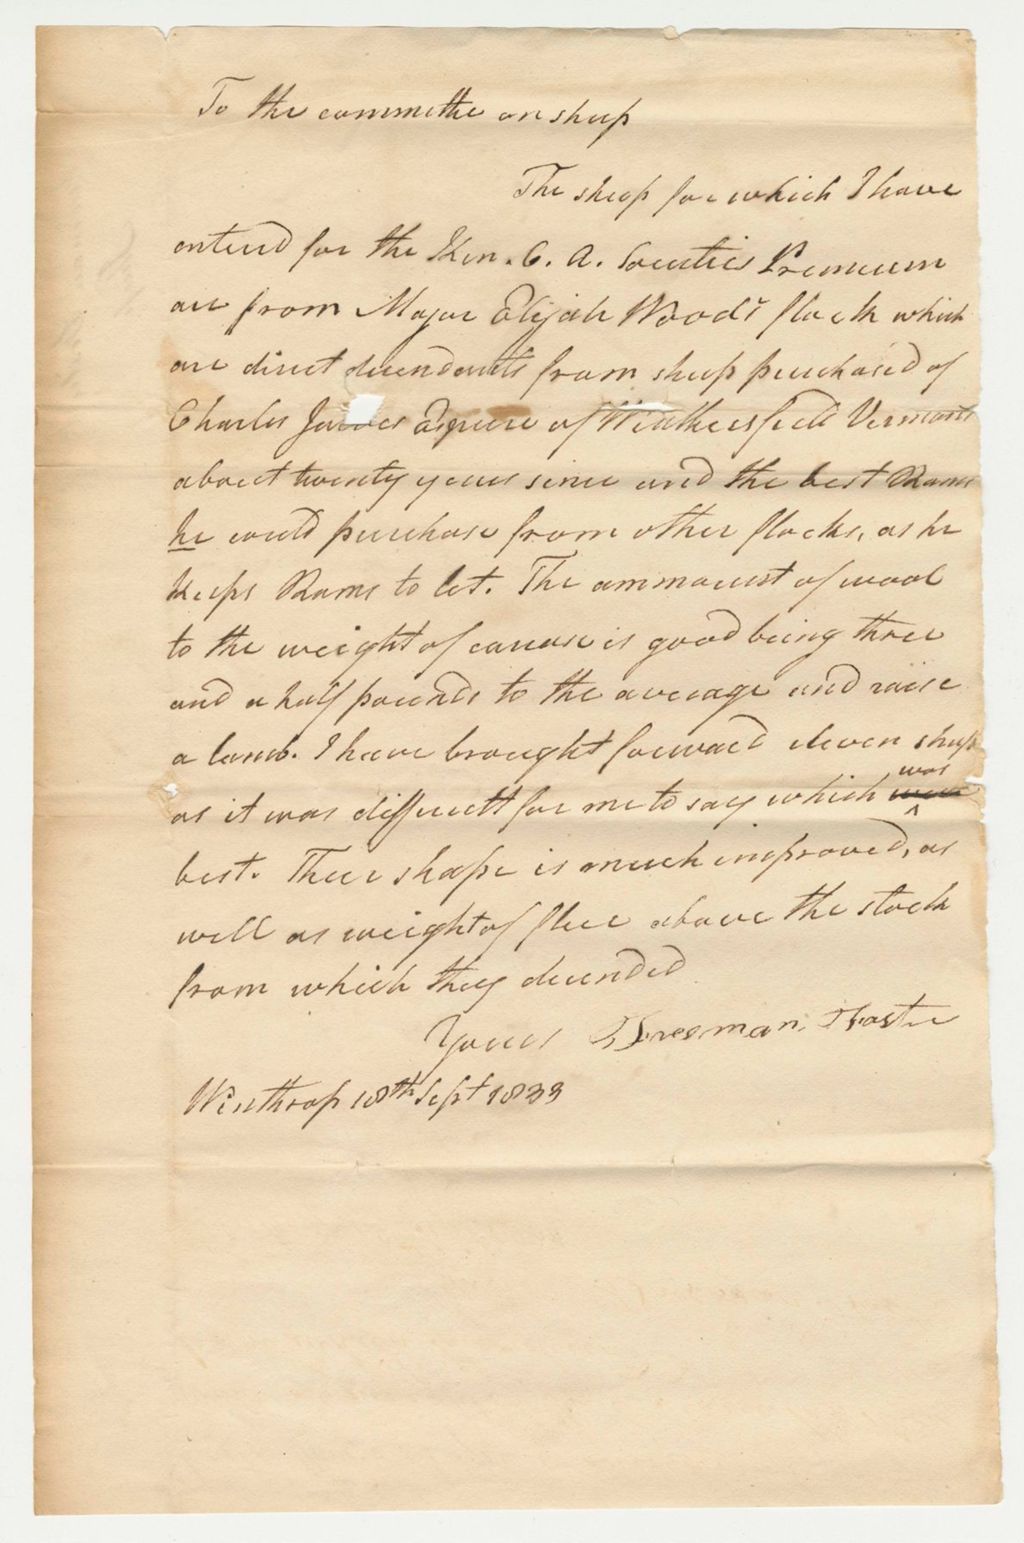 To the committee on sheep
The sheep for which I have
entered for the Ken. C. A. Societies Premium
are from Major Elijah Wood's flock which
are direct decendants from sheep purchased of
Charles Esquire of Weathersfield Vermont
about twenty years since and the best Rams
he could purchase from other flocks, as he
keeps Rams to let. The ammount of wool
to the weight of carcase is good being three
and a half pounds to the average and raise
a lamb. I have brought forward eleven sheep
as it was difficult for me to say which were was
best. There shape is much improved, as
well as weight of flece above the stock
from which they decended
Yours Freeman Foster
Winthrop 18th Sept 1833